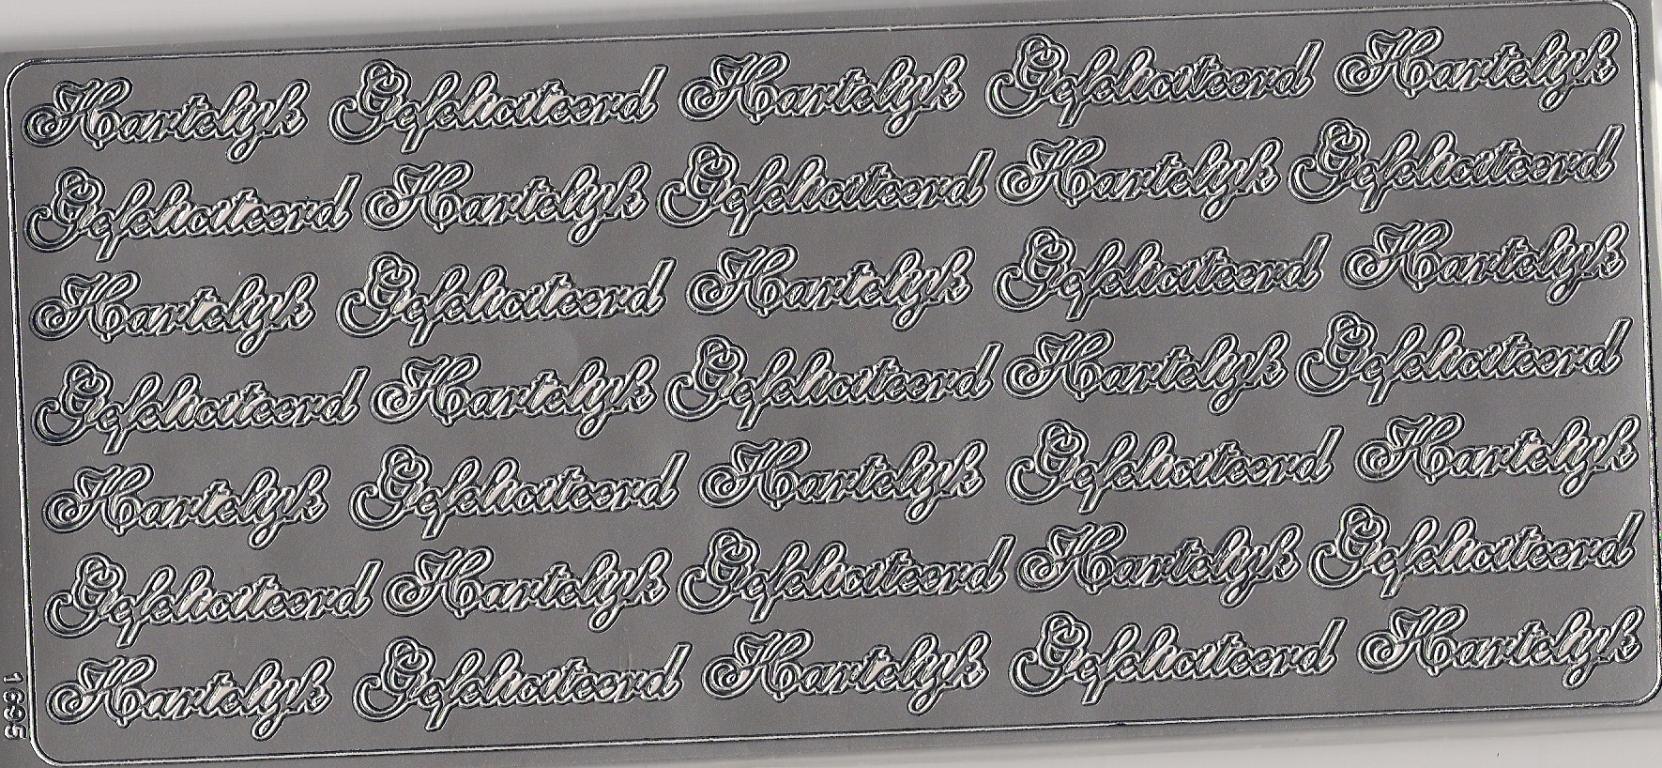 Hartelijk Gefeliciteerd Hartelijk Gefeliciteerd Hartelijk
Gefeliciteerd Hartelijk Gefeliciteerd Hartelijk Gefeliciteerd
Hartelijk Gefeliciteerd Hartelijk Gefeliciteerd Hartelijk
Gefeliciteerd Hartelijk Gefeliciteerd Hartelijk Gefeliciteerd
Hartelijk Gefeliciteerd Hartelijk Gefeliciteerd Hartelijk
Gefeliciteerd Hartelijk Gefeliciteerd Hartelijk Gefeliciteerd
Hartelijk Gefeliciteerd Hartelijk Gefeliciteerd Hartelijk